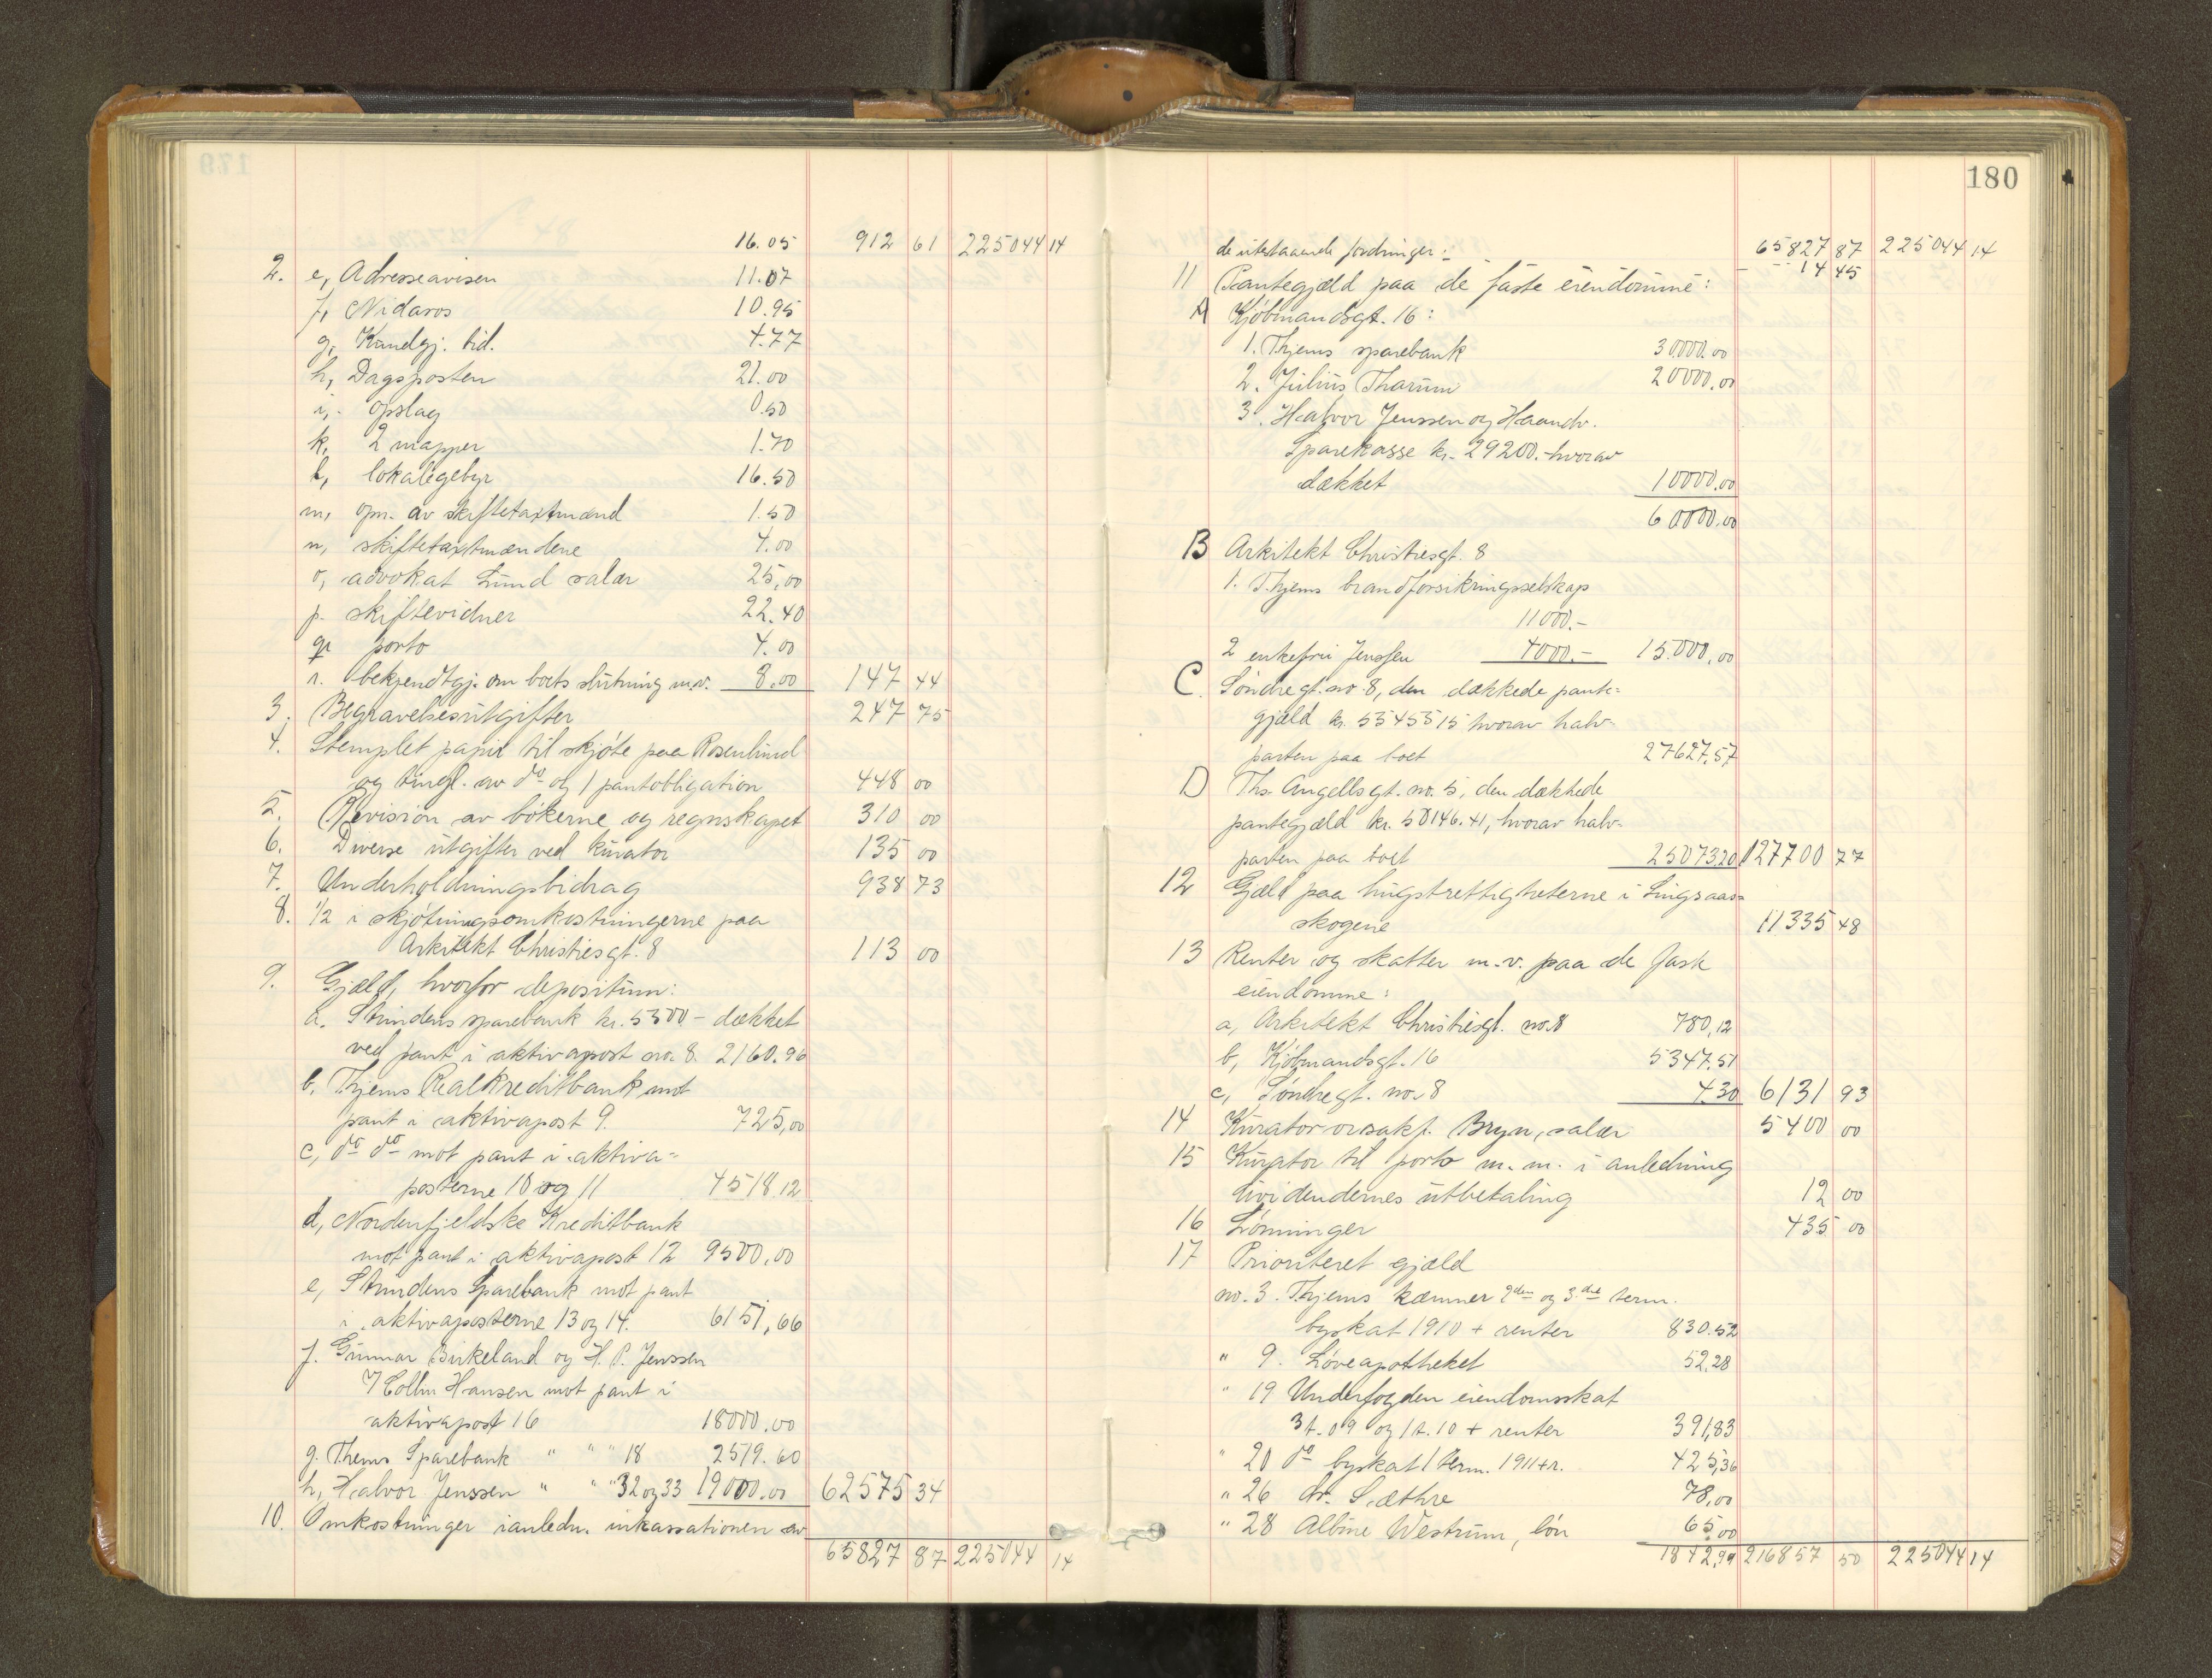 16.05 912 61 225044 14
2. e, Adresseavisen 11.07
f, Nidaros 10.95
g, Kundgj. tid. 4.77
h, Dagsposten 21.00
i, opslag 0.50
k, 2 mapper 1.70
l, lokalegebyr 16.50
m, opn. av skiftetaxtmænd 1.50
n, skiftetaxtmændene 4.00
o, advokat Lund salær 25,00
p. skiftevidner 22.40
q. porto 4.00
r. bekjendtgj. om boets slutning m.v. 8.00 147 44
3. Begravelsesutgifter 247 75
4. Stemplet papir til skjøte paa Rosenlund
og tingl. av do og 1 pantobligation 448 00
5. Revision av bøkerne og regnskapet 310 00
6. Diverse utgifter ved kurator 135 00
7. Underholdningsbidrag 938 73
8. 1/2 i skjøtningsomkostningerne paa
Arkitekt Christiesgt. 8 113 00
9. Gjæld, hvorfor depositum:
a. Strindens sparebank kr. 5300 - dækket
ved pant i aktivapost no. 8. 2160.96
b. Thjems Realkreditbank mot
pant i aktivapost 9. 725,00
c, do do mot pant i aktiva-
posterne 10 og 11 4518.12
d, Nordenfjeldske Kreditbank
mot pant i aktivapost 12 9500.00
e, Strindens Sparebank mot pant
i aktivaposterne 13 og 14. 6151,66
f. Gunnar Birkeland og H. P. Jenssen
7 Collin Hansen mot pant i
aktivapost 16 18000.00
g. Thems Sparebank " " " 18 2519.60
h, Halvor Jenssen " " " 32 og 33 19000.00 62575 34
10. Omkostninger i anledn. inkassationen av
65827 87 225044 14
180
de utestaaende fordringer: 65827 87 225044 14
14 45
11 Pantegjæld paa de faste eiendomme:
A Kjøbmandsgt. 16:
1. Thjems sparebank 30000.00
2. Julius Tharum 20000.00
3. Halvor Jenssen og Haandv.
Sparekasse kr. 29200.- hvorav
dækket 10000.00
60000.00
B Arkitekt Christiesgt. 8
1. Thjems brandforsikringsselskap
11000.-
2 enkefru Jenssen 4000.- 15.000.00
C. Søndregt. no. 8, den dækkede pante-
gjæld kr. 55455 15 hvorav halv-
parten paa boet 27627.57
D Ths. Angellsgt. no. 5, den dækkede
pantegjæld kr. 50146.41, hvorav halv-
parten paa boet 25073 20 127700 77
12 Gjæld paa hugstrettigheterne i Singsaas-
skogene 11335 48
13 Renter og skatter m.v. paa de faste
eiendomme:
a, Arkitekt Christiesgt. no. 8 780,12
b, Kjøbmandsgt. 16 5347.51
c, Søndregt. no. 8 4.30 6131 93
14 Kurator o.r.sakf. Bryn, salær 5400 00
15 Kurator til porto m.m. i anledning
dividendernes utbetaling 12 00
16 Lønninger 435 00
17 Prioriteret gjæld
no. 3. Thjems kæmner 2den og 3die term.
byskat 1910 + renter 830.52
" 9. Løveapotheket 52.28
" 19 Underfogden eiendomsskat
3t. 09 og 1t. 10 + renter 391,83
" 20 do byskat 1 term. 1911 + r. 425,36
" 26 dr. Sæthre 78,00
" 28 Albine Westrum, løn 65.00
1842,99 216857 50 225044 14